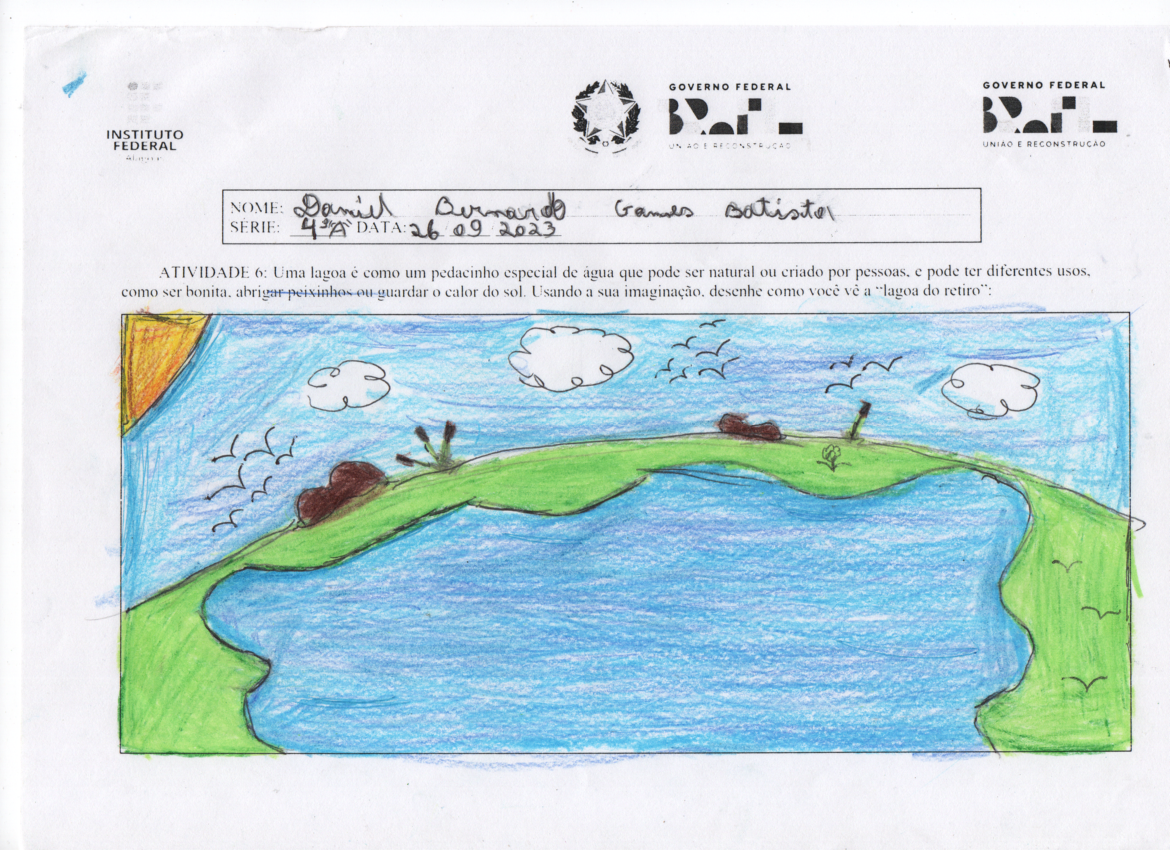 INSTITUTO
FEDERAL
Alagoas
GOVERNO FEDERAL
BRASIL
UNIÃO E RECONSTRUÇÃO
GOVERNO FEDERAL
BRASIL
UNIÃO E RECONSTRUÇÃO
NOME: Daniel Bernardo Gomes Batista
SÉRIE: 4º "A" DATA: 26 09 2023
ATIVIDADE 6: Uma lagoa é como um pedacinho especial de água que pode ser natural ou criado por pessoas, e pode ter diferentes usos,
como ser bonita, abrigar peixinhos ou guardar o calor do sol. Usando a sua imaginação, desenhe como você vê a "lagoa do retiro":